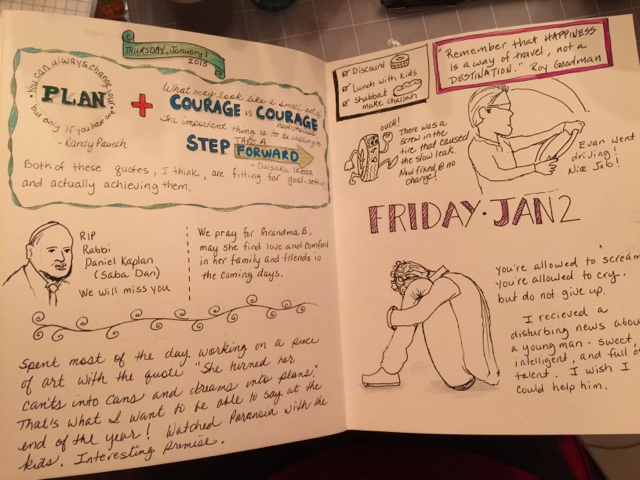 THURSDAY, January 1
2015
You can always change your
PLAN
but only if you have one
- Randy Pausch
+
What may look like a small act of
COURAGE is COURAGE
nevertheless.
The important thing is to be willing to
TAKE A
STEP FORWARD
- Daisaku Ikeda
Both of these quotes, I think, are fitting for goal-setting
and actually achieving them.
RIP
Rabbi
Daniel Kaplan
(Saba Dan)
We will miss you
We pray for Grandma B,
may she find love and comfort
in her family and friends in
the coming days.
Spent most of the day working on a piece
of art with the quote "She turned her
can'ts into cans and dreams into plans."
That's what I want to be able to say at the
end of the year! Watched Paranoia with the
kids. Interesting Premise.
Discount
Lunch with Kids
Shabbat
make challah
"Remember that HAPPINESS
is a way of travel, not a
DESTINATION." Roy Goodman
OUCH!
There was a
screw in the
tire that caused
the slow leak.
Now fixed @ no
charge!
Evan went
driving!
Nice Job!
FRIDAY · JAN 2
You're allowed to scream,
you're allowed to cry..
but do not give up.
I recieved a
disturbing news about
a young man - sweet,
intelligent, and full of
talent. I wish I
could help him.